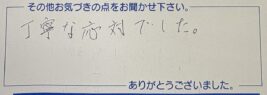 その他お気づきの点をお聞かせ下さい。
丁寧な応対でした。
ありがとうございました。